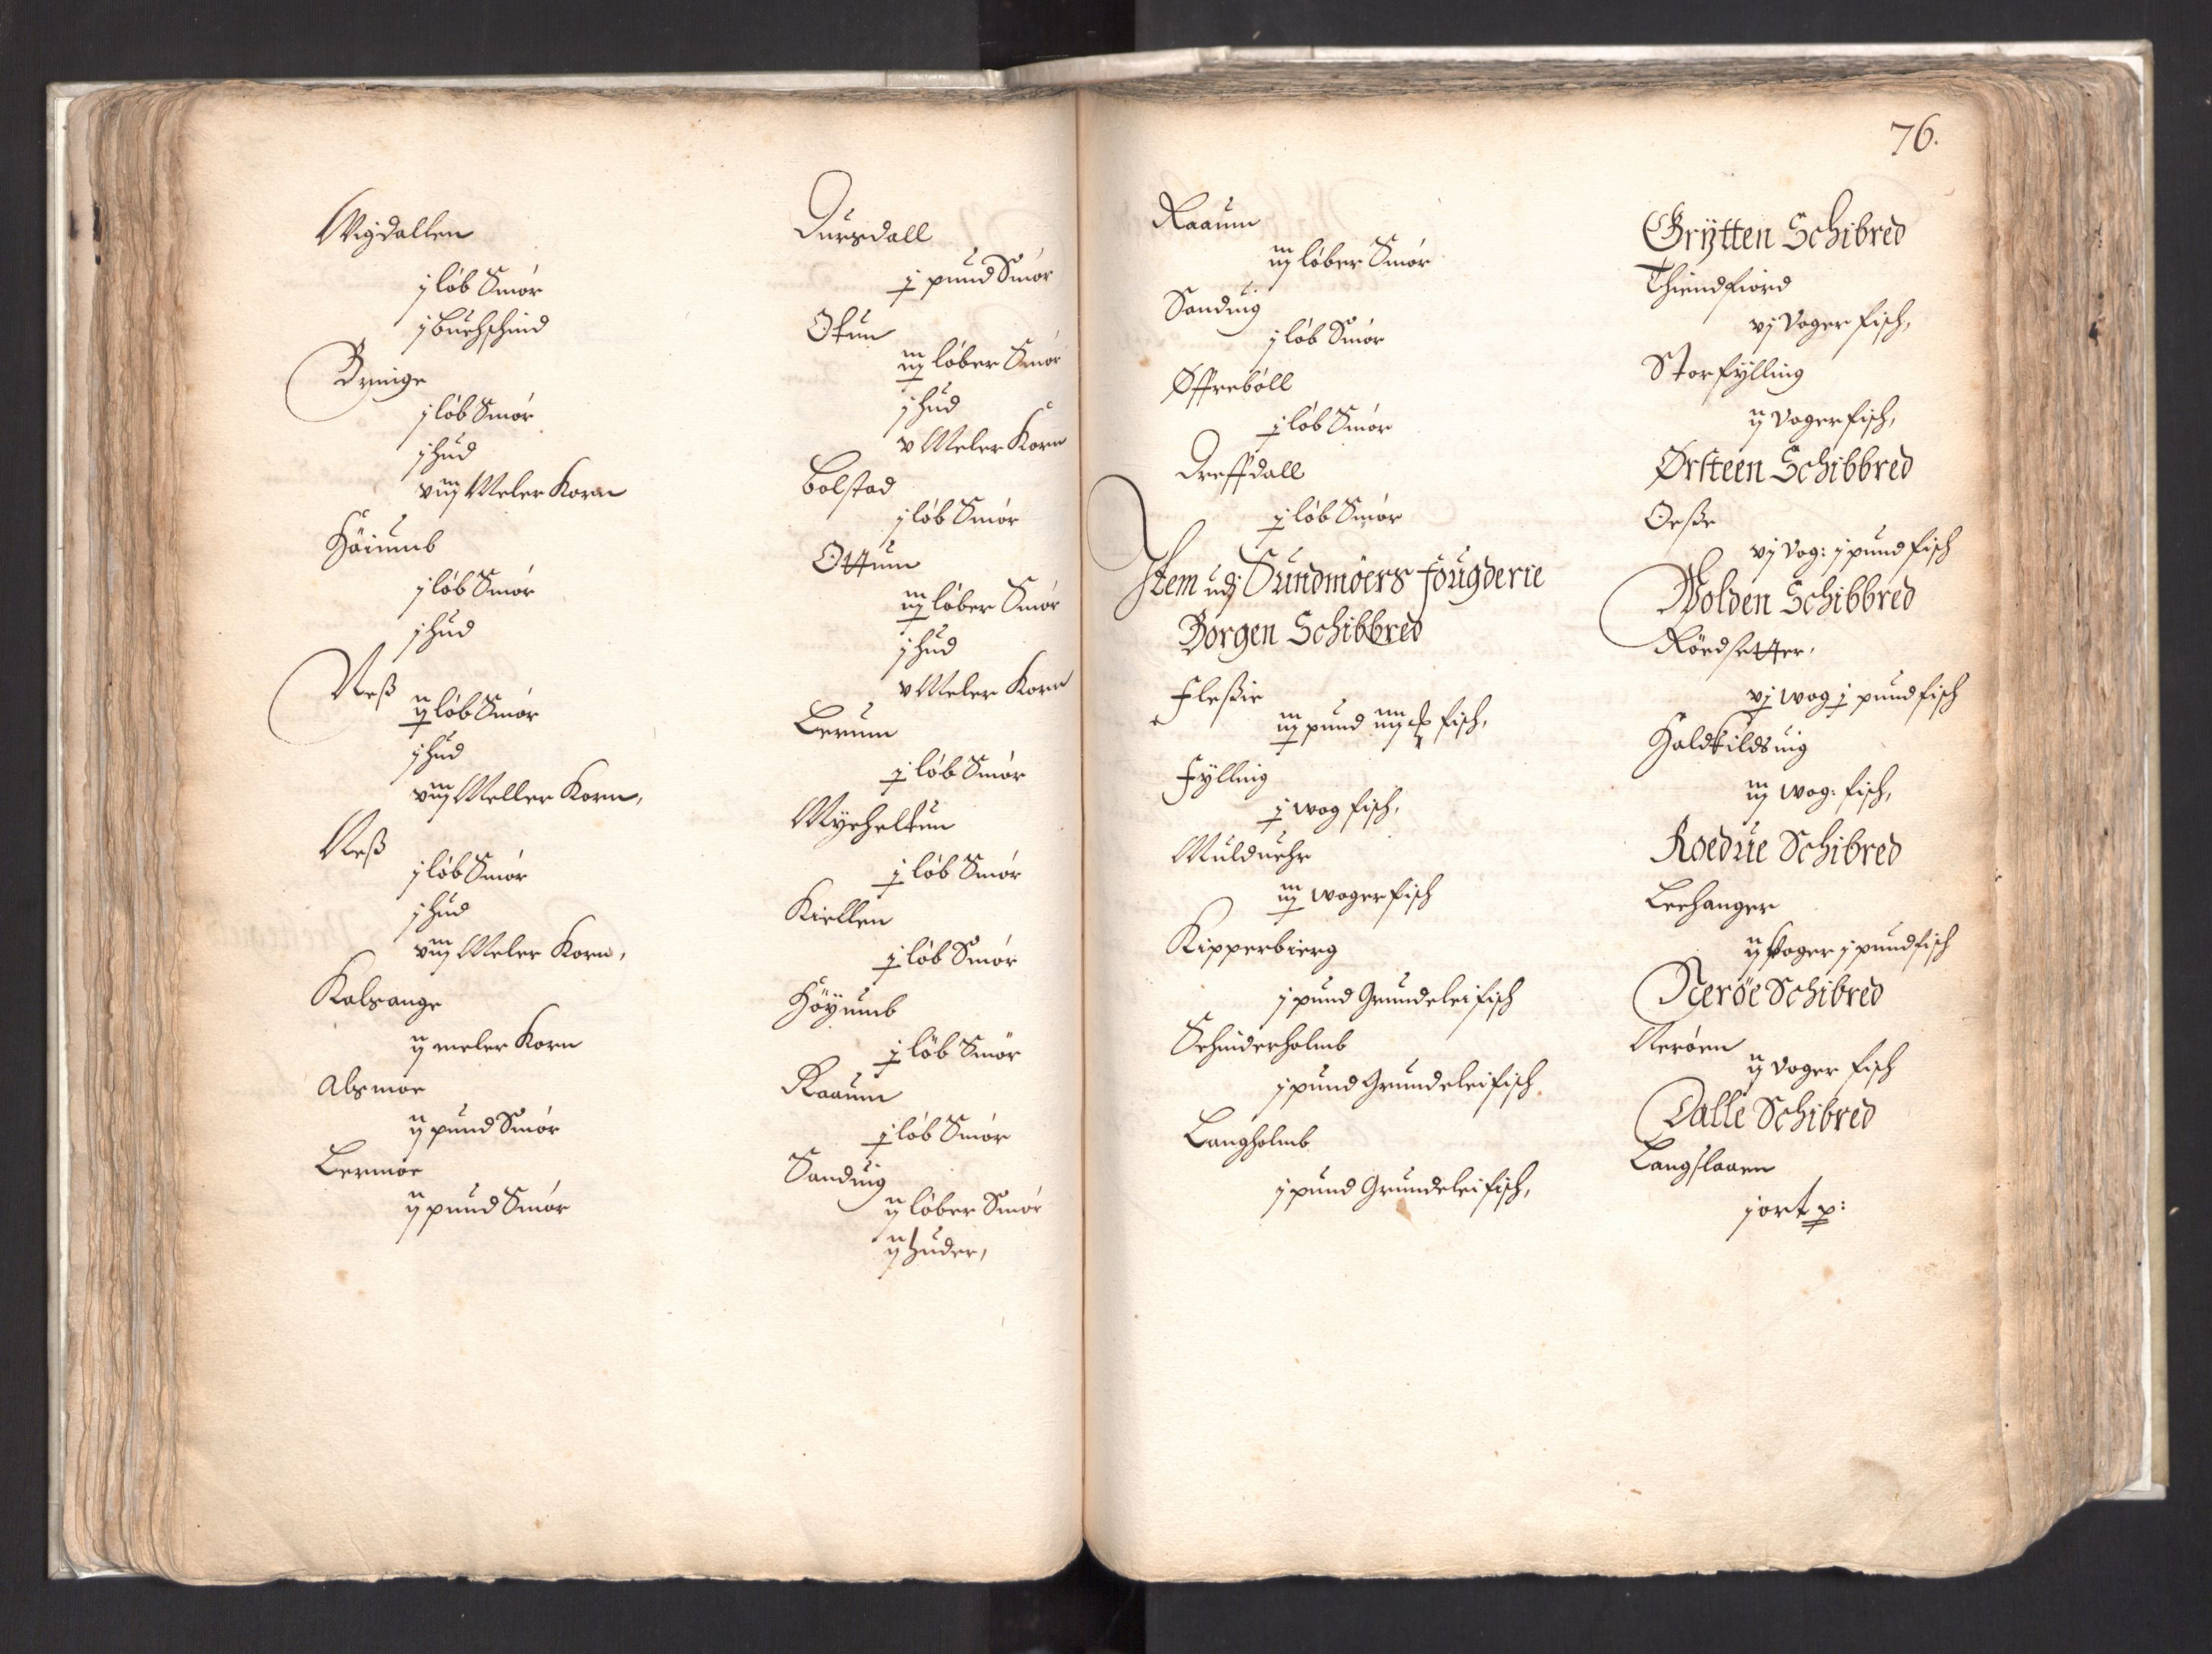 Wigdallen
j löb Smör
j Buchschind
Bringe
j löb Smör
j hud
viij Meler Korn
Höiumb
j löb Smör
j hud
Neß
ij löb Smör
j hud
viij Meller Korn,
Neß
j löb Smör
j hud
viij Meler Korn,
Kalsange
ij meler Korn
Alsmoe
ij pund Smör
Lermoe
ij pund Smör
Dursdall
j pund Smör
Otun
iij löber Smör
j hud
v Meler Korn
Bolstad
j löb Smör
Ottum
iij löber Smör
j hud
v Meler Korn
Lerum
j löb Smör
Mycheltun
j löb Smör
Kiellen
j löb Smör
Höyumb
j löb Smör
Raaum
j löb Smör
Sanduig
ij löber Smör
ij huder,
76.
Raaum
iij löber Smör
Sanduig
j löb Smör
Øffreböll
j löb Smör
Dreffdall
j löb Smör
Item udj Sundmöers fougderie
Borgen Schibbred
Fleßie
iij pund iiij fisch,
Fylling
j wog fisch,
Mulduehr
iij woger fisch
Kipperbierg
j pund Grundelei fisch
Schinderholmb
j pund Grundelei fisch
Langholmb
j pund Grundelei fisch,
Grÿtten Schibred
Thiendfiord
vj Voger fisch,
Storfÿlling
ij Voger fisch,
Ørsteen Schibbred
Oeße
vj Vog: j pund fisch
Wolden Schibbred
Rördsetter,
vj wog j pund fisch
Haldkildsuig
iij wog: fisch,
Roedue Schibred
Leehanger
ij Voger j pund fisch
Neröe Schibred
Neröen
ij Voger fisch
Dalle Schibred
Langslaaen
j ort p: